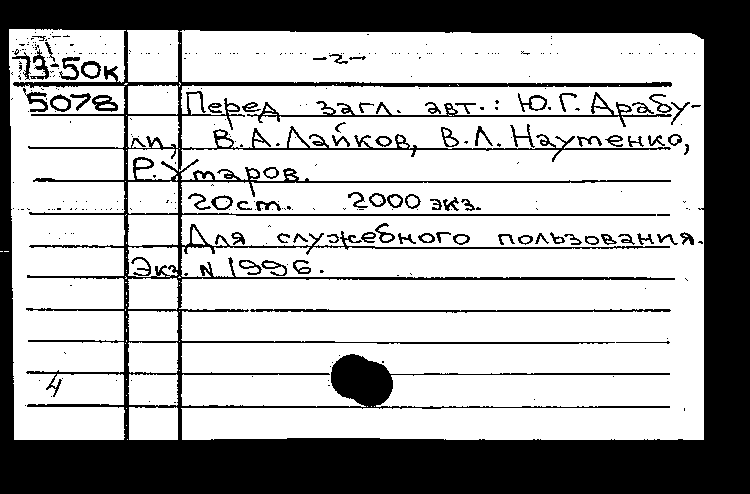 73-50к
-2-
5078 Перед загл. авт.: Ю.Г. Арабу-
ли, В.А. Лайков, В.Л. Наутенко,
Р. Утаров.
20 ст. 2000 экз.
Для служебного пользования.
Экз. N 1996.
4